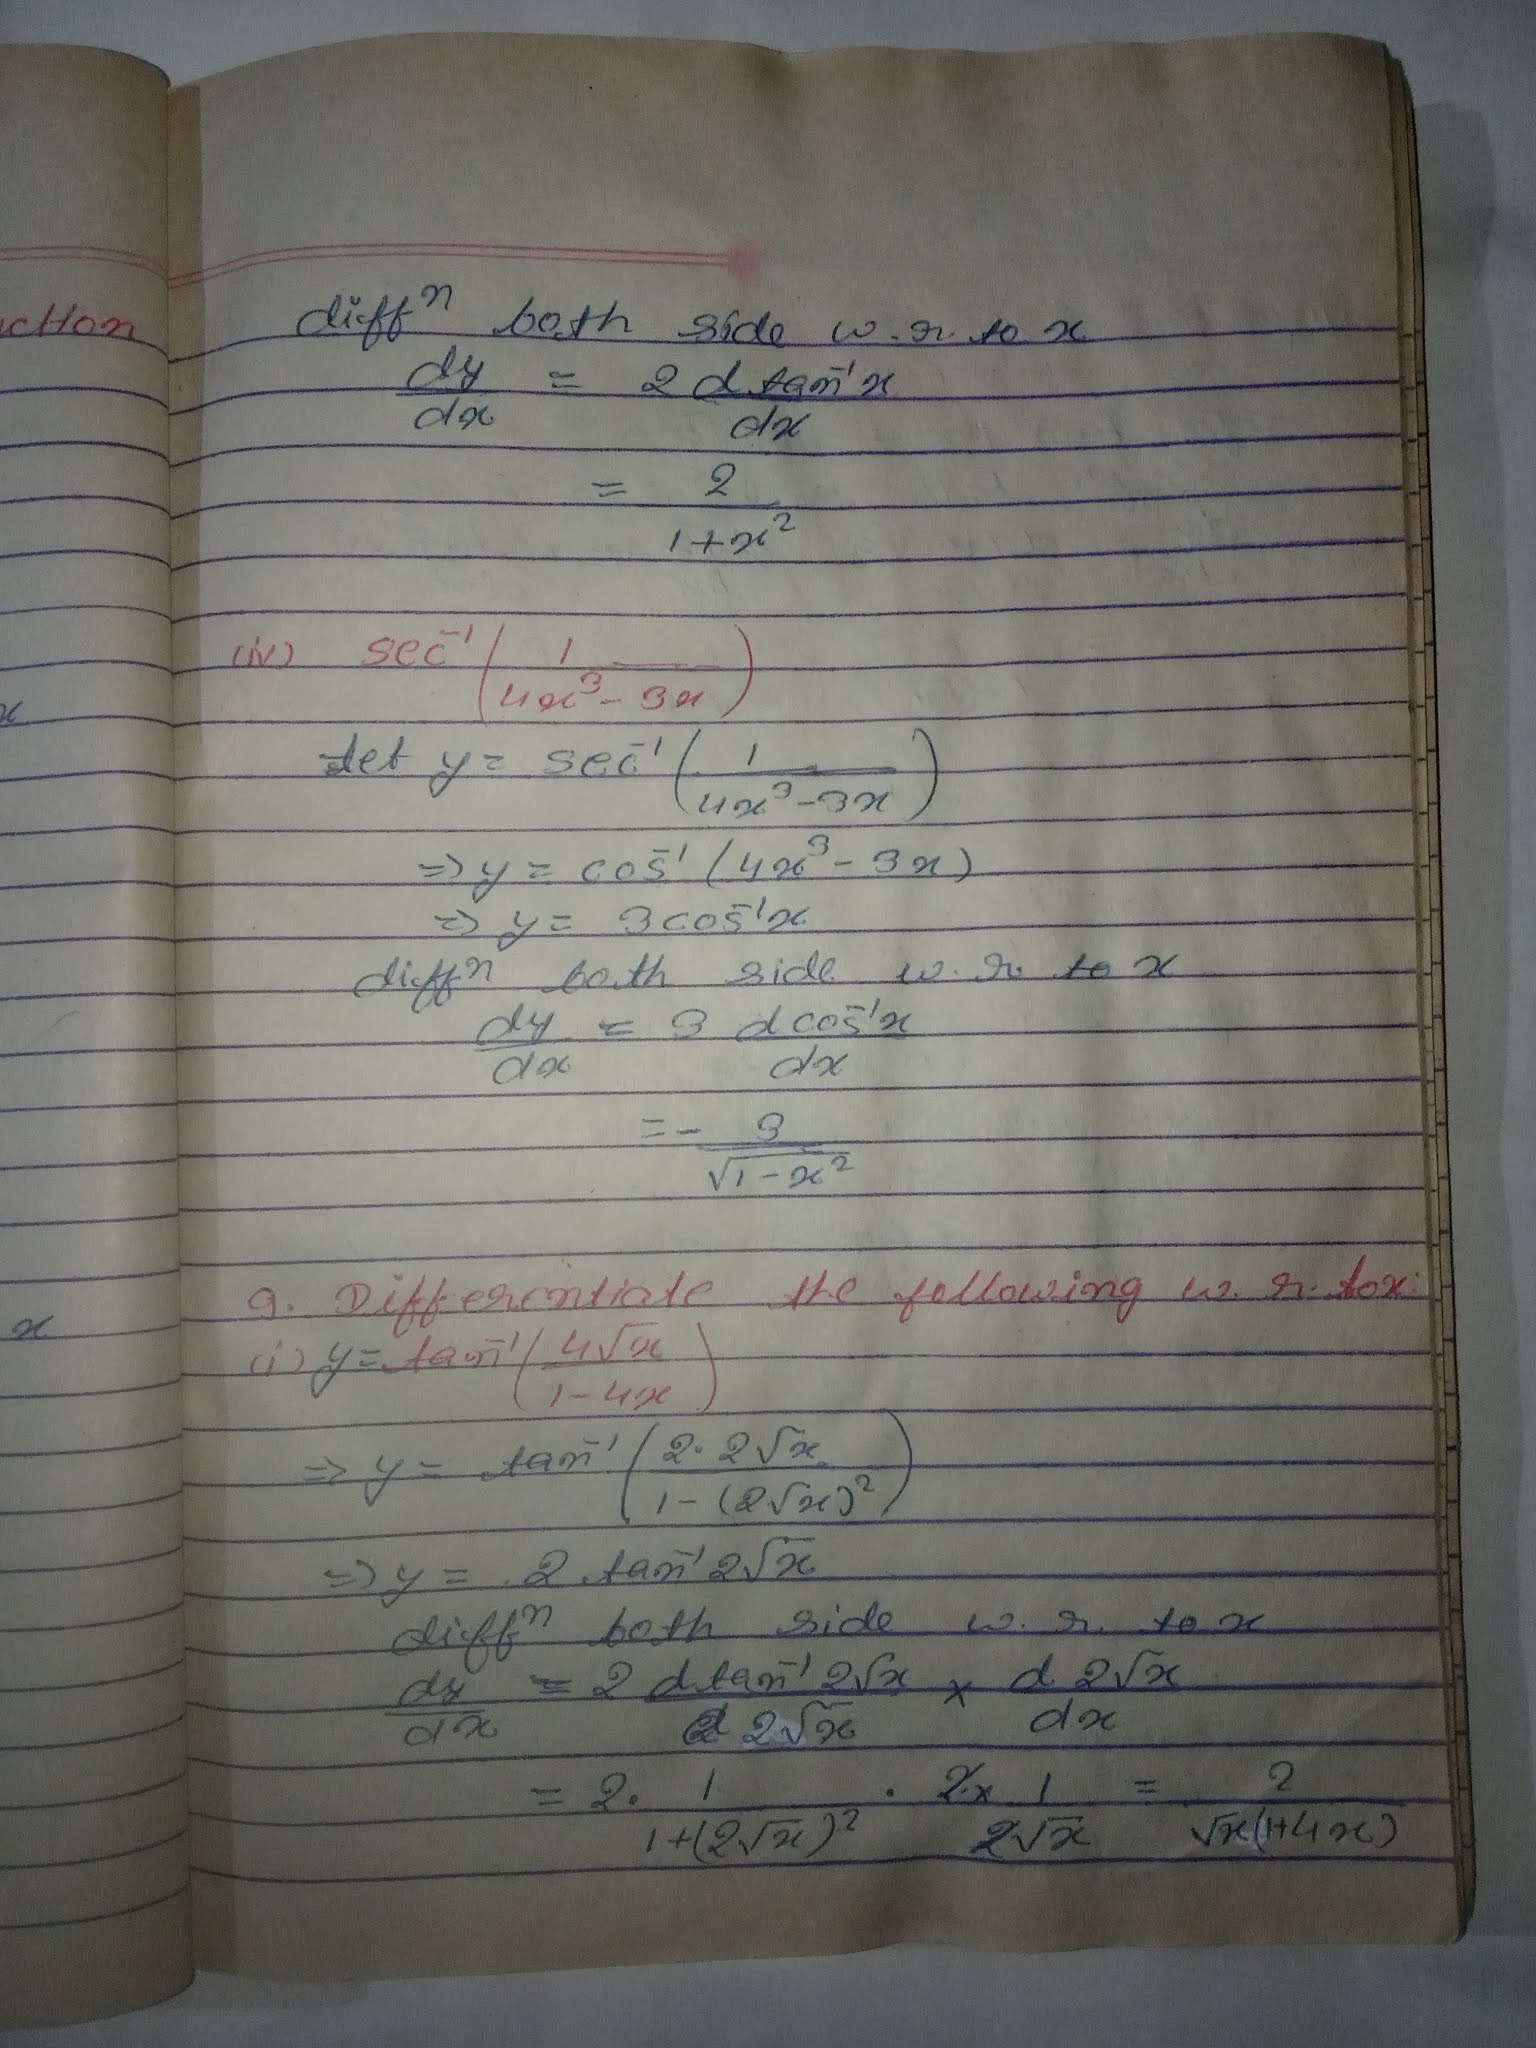 ction
diffⁿ both side w.r.to x
dy/dx = 2 d tan⁻¹x/dx
= 2/1+x²
(iv) sec⁻¹(1/4x³-3x)
x
Let y = sec⁻¹(1/4x³-3x)
⇒ y = cos⁻¹(4x³-3x)
⇒ y = 3cos⁻¹x
diffⁿ both side w.r. to x
dy/dx = 3 d cos⁻¹x/dx
= - 3/√1-x²
9. Differentiate the following w.r.to x.
x
(i) y = tan⁻¹(4√x/1-4x)
⇒ y = tan⁻¹(2·2√x/1-(2√x)²)
⇒ y = 2 tan⁻¹2√x
diffⁿ both side w.r. to x
dy/dx = 2 d tan⁻¹2√x/d 2√x × d 2√x/dx
= 2· 1/1+(2√x)² · 2× 1/2√x = 2/√x(1+4x)